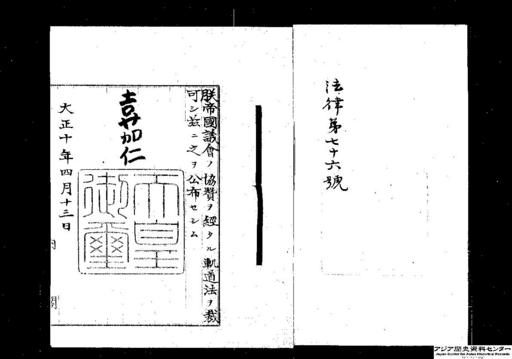 法律第七十六號
朕帝國議會ノ協贊ヲ經タル軌道法ヲ裁
可シ茲ニ之ヲ公布セシム
嘉仁
天皇御璽
大正十年四月十三日
内閣
アジア歴史資料センター
Japan Center for Asian Historical Records